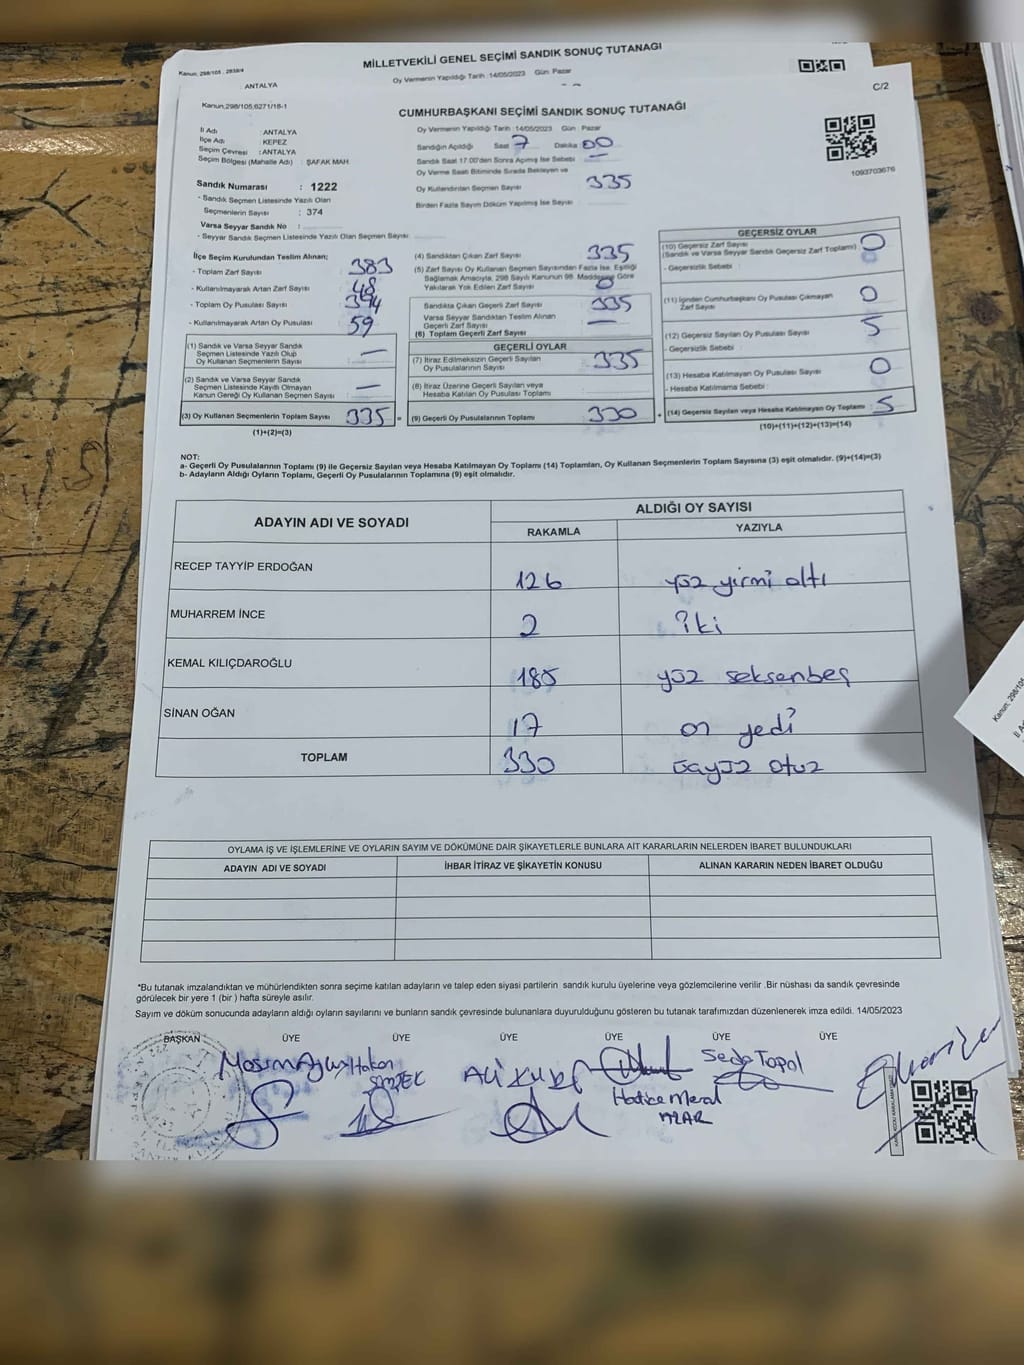 Kanun: 298/105, 2839/4
MİLLETVEKİLİ GENEL SEÇİMİ SANDIK SONUÇ TUTANAGI
Oy Vermenin Yapıldığı Tarih :14/05/2023 Gün: Pazar
: ANTALYA
C/2
Kanun,298/105,6271/18-1
CUMHURBAŞKANI SEÇİMİ SANDIK SONUÇ TUTANAĞI
İl Adı : ANTALYA
İlçe Adı : KEPEZ
Seçim Çevresi : ANTALYA
Seçim Bölgesi (Mahalle Adı) : ŞAFAK MAH
Oy Vermenin Yapıldığı Tarih :14/05/2023 Gün : Pazar
Sandığın Açıldığı Saat 7 Dakika 00
Sandık Saat 17:00'den Sonra Açımış İse Sebebi
Oy Verme Saati Bitiminde Sırada Bekleyen ve
Oy Kullandırılan Seçmen Sayısı 335
Birden Fazla Sayım Döküm Yapılmış İse Sayısı
1093703676
Sandık Numarası : 1222
- Sandık Seçmen Listesinde Yazılı Olan
Seçmenlerin Sayısı : 374
Varsa Seyyar Sandık No :
- Seyyar Sandık Seçmen Listesinde Yazılı Olan Seçmen Sayısı:
İlçe Seçim Kurulundan Teslim Alınan;
- Toplam Zarf Sayısı 383
- Kullanılmayarak Artan Zarf Sayısı 48
- Toplam Oy Pusulası Sayısı
- Kullanılmayarak Artan Oy Pusulası 59
(1) Sandık ve Varsa Seyyar Sandık
Seçmen Listesinde Yazılı Olup
Oy Kullanan Seçmenlerin Sayısı —
(2) Sandık ve Varsa Seyyar Sandık
Seçmen Listesinde Kayıtlı Olmayan
Kanun Gereği Oy Kullanan Seçmen Sayısı —
(3) Oy Kullanan Seçmenlerin Toplam Sayısı 335 =
(1)+(2)=(3)
(4) Sandıktan Çıkan Zarf Sayısı 335
(5) Zarf Sayısı Oy Kullanan Seçmen Sayısından Fazla İse, Eşitliği
Sağlamak Amacıyla, 298 Sayılı Kanunun 98. Maddesine Göre
Yakılarak Yok Edilen Zarf Sayısı 0
Sandıkta Çıkan Geçerli Zarf Sayısı 335
Varsa Seyyar Sandıktan Teslim Alınan
Geçerli Zarf Sayısı —
(6) Toplam Geçerli Zarf Sayısı
GEÇERLİ OYLAR
(7) İtiraz Edilmeksizin Geçerli Sayılan
Oy Pusulalarının Sayısı 335
(8) İtiraz Üzerine Geçerli Sayılan veya
Hesaba Katılan Oy Pusulası Toplamı
(9) Geçerli Oy Pusulalarının Toplamı 330 +
GEÇERSİZ OYLAR
(10) Geçersiz Zarf Sayısı
(Sandık ve Varsa Seyyar Sandık Geçersiz Zarf Toplamı) 0
- Geçersizlik Sebebi :
(11) İçinden Cumhurbaşkanı Oy Pusulası Çıkmayan
Zarf Sayısı 0
(12) Geçersiz Sayılan Oy Pusulası Sayısı 5
- Geçersizlik Sebebi
(13) Hesaba Katılmayan Oy Pusulası Sayısı 0
- Hesaba Katılmama Sebebi :
(14) Geçersiz Sayılan veya Hesaba Katılmayan Oy Toplamı : 5
(10)+(11)+(12)+(13)=(14)
NOT:
a- Geçerli Oy Pusulalarının Toplamı (9) ile Geçersiz Sayılan veya Hesaba Katılmayan Oy Toplamı (14) Toplamları, Oy Kullanan Seçmenlerin Toplam Sayısına (3) eşit olmalıdır. (9)+(14)=(3)
b- Adayların Aldığı Oyların Toplamı, Geçerli Oy Pusulalarının Toplamına (9) eşit olmalıdır.
ADAYIN ADI VE SOYADI
ALDIĞI OY SAYISI
RAKAMLA YAZIYLA
RECEP TAYYİP ERDOĞAN 126 yüz yirmi altı
MUHARREM İNCE 2 iki
KEMAL KILIÇDAROĞLU 185 yüz seksenbeş
SİNAN OĞAN 17 on yedi
TOPLAM 330 üçyüz otuz
OYLAMA İŞ VE İŞLEMLERİNE VE OYLARIN SAYIM VE DÖKÜMÜNE DAİR ŞİKAYETLERLE BUNLARA AİT KARARLARIN NELERDEN İBARET BULUNDUKLARI
ADAYIN ADI VE SOYADI İHBAR İTİRAZ VE ŞİKAYETİN KONUSU ALINAN KARARIN NEDEN İBARET OLDUĞU
*Bu tutanak imzalandıktan ve mühürlendikten sonra seçime katılan adayların ve talep eden siyasi partilerin sandık kurulu üyelerine veya gözlemcilerine verilir .Bir nüshası da sandık çevresinde
görülecek bir yere 1 (bir ) hafta süreyle asılır.
Sayım ve döküm sonucunda adayların aldığı oyların sayılarını ve bunların sandık çevresinde bulunanlara duyurulduğunu gösteren bu tutanak tarafımızdan düzenlenerek imza edildi. 14/05/2023
BAŞKAN ÜYE ÜYE ÜYE ÜYE ÜYE ÜYE
Hakan
ŞİMŞEK
Seda Topal
Hatice Meral